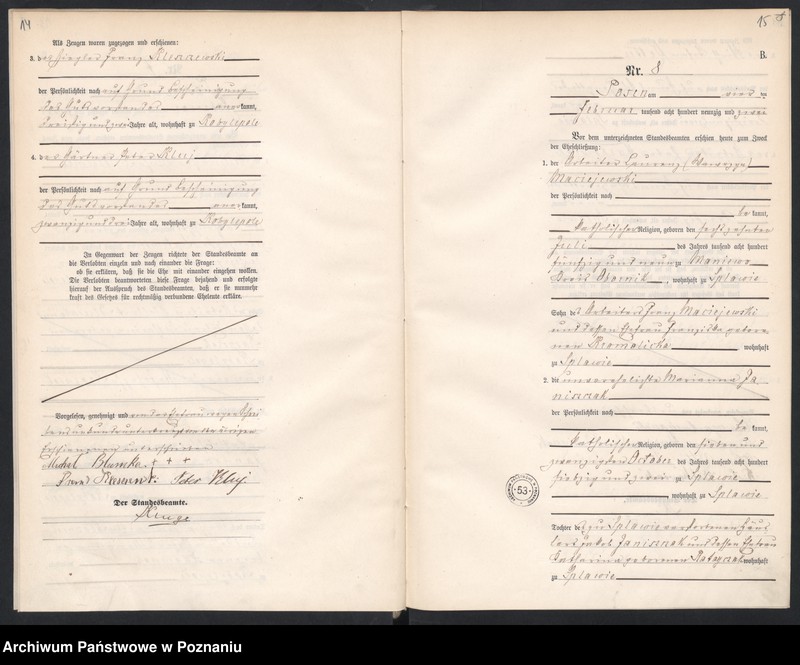 14
Als Zeugen waren zugezogen und erschienen:
3. der Ziegler Franz
der Persönlichkeit nach auf Grund Bescheinigung
des Gutsvorstandes anerkannt,
Jahre alt, wohnhaft zu Rozylepole
4. der Gärtner Peter Kluj
der Persönlichkeit nach auf Grund Bescheinigung
des Gutsvorstandes anerkannt,
zwanzigunddrei Jahre alt, wohnhaft zu Rozylepole
In Gegenwart der Zeugen richtete der Standesbeamte an
die Verlobten einzeln und nach einander die Frage:
ob sie erklären, daß sie die Ehe mit einander eingehen wollen.
Die Verlobten beantworteten diese Frage bejahend und erfolgte
hierauf der Ausspruch des Standesbeamten, daß er sie nunmehr
kraft des Gesetzes für rechtmäßig verbundene Eheleute erkläre.
Vorgelesen, genehmigt und von der Ehefrau wegen Schrei
Erschienenen unterschrieben
Michel Blumka. + + +
Peter Kluj
Der Standesbeamte.
15
B.
Nr. 8
Posen am vierten
Februar tausend acht hundert neunzig und zwei
Vor dem unterzeichneten Standesbeamten erschien heute zum Zweck
der Eheschließung:
1. der Arbeiter Laurenz (Wawrzyn)
Maciejewski
der Persönlichkeit nach
bekannt,
katholischer Religion, geboren den sechszehnten
Juli des Jahres tausend acht hundert
fünfzig und neun zu Maniewo
Kreis Obornik, wohnhaft zu Splawie
Sohn des Arbeiters Franz Maciejewski
und dessen Ehefrau Franziska gebore
nen wohnhaft
zu Splawie
2. die unverehelichte Marianna Ja
niszzak
der Persönlichkeit nach
bekannt,
katholischer Religion, geboren den sieben und
zwanzigsten October des Jahres tausend acht hundert
siebzig und zwei zu Splawie
, wohnhaft zu Splawie
53
Tochter des zu Splawie verstorbenen Häus
lers Jakob Janiszzak und dessen Ehefrau
Katharina geborenen Ratayzak wohnhaft
zu Splawie
Archiwum Państwowe w Poznaniu